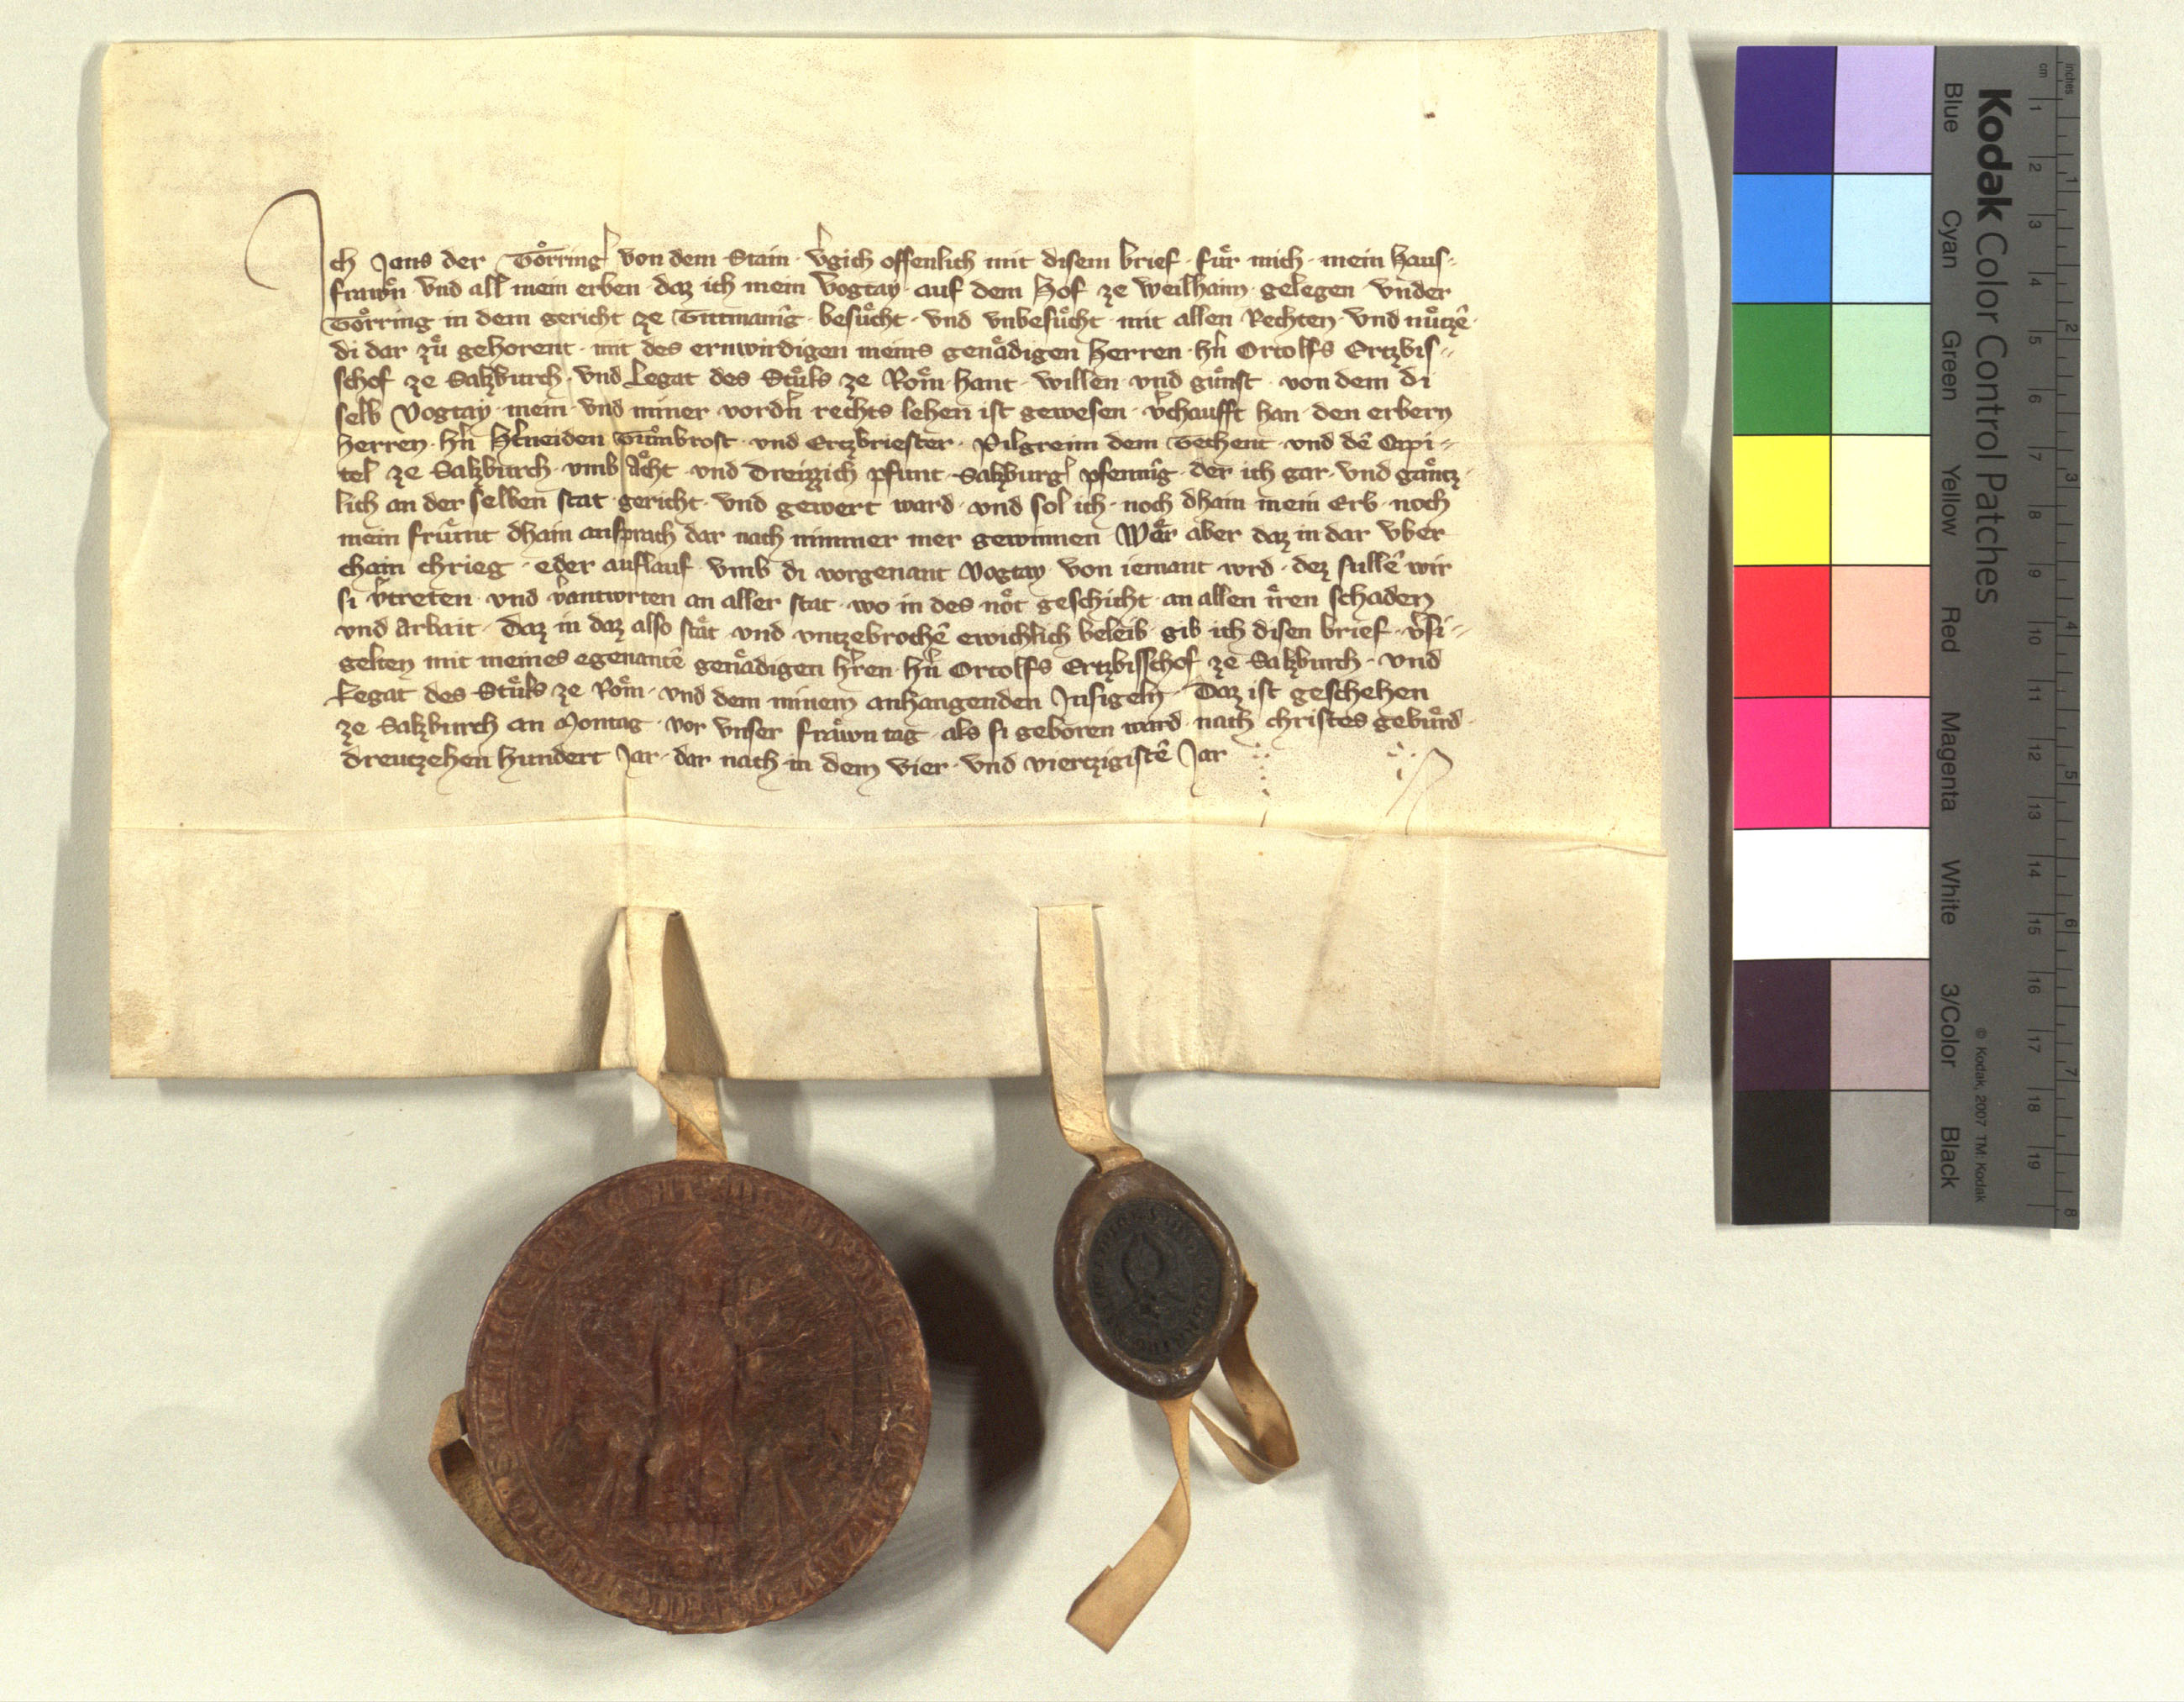 Ich Jans der Toͤrring᾽ von dem Stain · v᾽gich offenlich mit disem brief · fuͤr mich · mein haus-
frawn · vnd all mein erben · daz ich mein Vogtay · auf dem Hof ze Weilhaim gelegen vnder
Toͤrring in dem gericht ze Titmanīg · besuͤcht · vnd vnbesuͤcht · mit allen Rechten · vnd nuͤtzē ·
di dar zuͤ gehorent · mit des ernwirdigen meins genaͤdigen Herren · hn̄ Ortolfs Ertzbis-
schof ze Saltzburch · vnd Legat des Stuͤls ze Roͤm · hant · willen · vnd guͤnst · von dem di
selb Vogtay · mein · vnd miner vordn̄ rechts lehen ist gewesen · v᾽chaufft han · den erbern
Herren · hn̄ H᾽tneiden Tuͤmbrost · vnd Ertzbriester · Pilgreim dem Techent · vnd dē Capi-
tel ze Saltzburch · vmb Aͤcht · vnd Dreizzich pfunt · Saltzburg᾽ pfennīg · der ich gar · vnd gaͤntz-
lich an der selben stat gericht · vnd gewert ward · vnd sol ich · noch dhain mein Erb · noch
mein fruͤnt dhain ansprach dar nach nimmer mer gewinnen Waͤr aber daz in dar vber
chain chrieg · eder auflauf · vmb di vorgenant Vogtay · von iemant wrd · dez sullē wir
si v᾽treten · vnd v᾽antwrten an aller stat · wo in des noͤt geschicht · an allen iren schaden
vnd Arbait · Daz in daz also staͤt · vnd vntzebrochē ewichlich beleib · gib ich disen brief · v᾽si-
gelten mit meines egenantē genaͤdigen h᾽ren · hn̄ Ortolfs Ertzbisschof ze Saltzburch · vnd
Legat des Stuͤls ze Roͤm · vnd dem minem anhangenden Insigeln · Daz ist geschehen
ze Saltzburch an Montag · vor vnser frawn tag · als si geboren ward · nach christes gebuͤrd ·
dreutzehen hundert Jar · dar nach in dem vier · vnd viertzigistē Jar
Kodak Color Control Patches
Blue Cyan Green Yellow Red Magenta White 3/Color Black
© Kodak, 2007 TM: Kodak
cm 1 2 3 4 5 6 7 8 9 10 11 12 13 14 15 16 17 18 19
inches 1 2 3 4 5 6 7 8